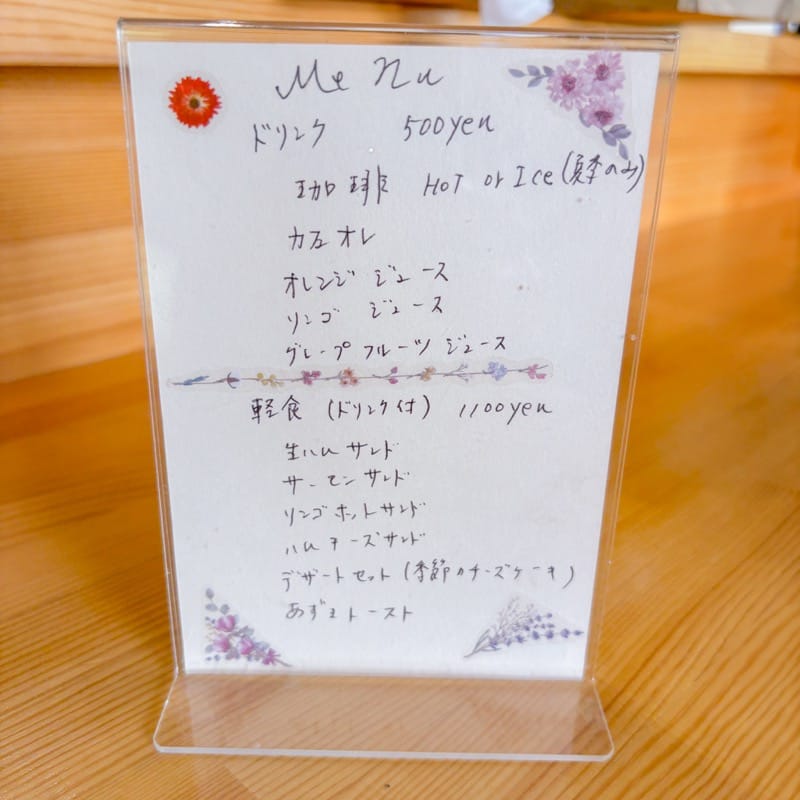 Menu
ドリンク 500yen
珈琲 HOT or Ice(夏季のみ)
カフェオレ
オレンジ ジュース
リンゴ ジュース
グレープフルーツ ジュース
軽食 (ドリンク付) 1100yen
生ハムサンド
サーモンサンド
リンゴホットサンド
ハムチーズサンド
デザートセット(季節のチーズケーキ)
あずきトースト